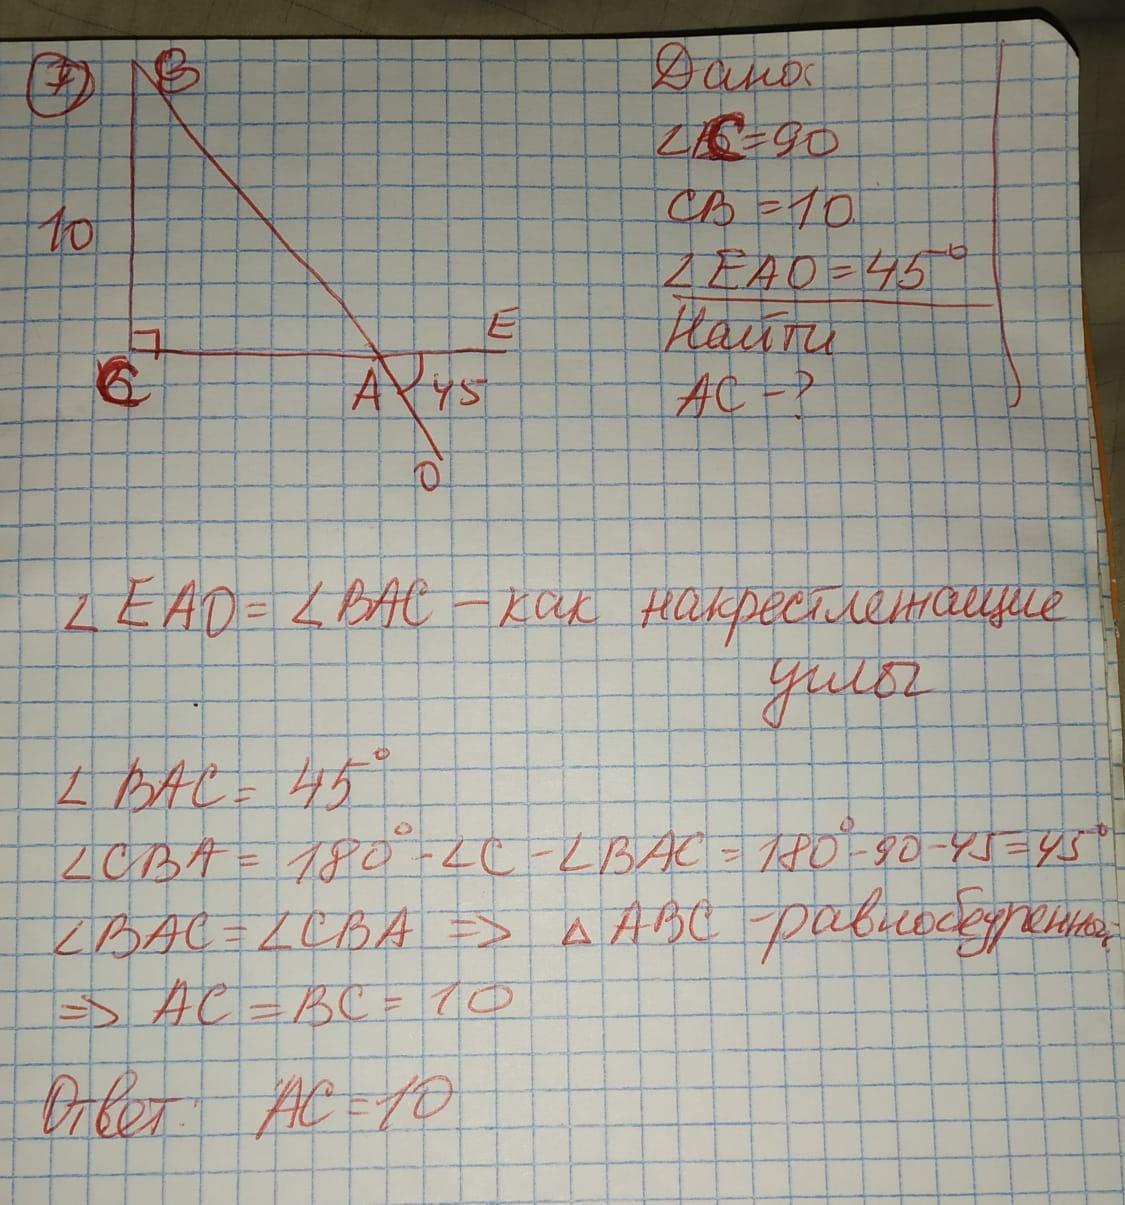 7
B
10
C
A 45
E
O
Дано:
∠C=90
CB=10
∠EAO=45°
Найти
AC-?
∠EAO=∠BAC-как накрестлежащие
углы
∠BAC=45°
∠CBA=180°-∠C-∠BAC=180°-90-45=45°
∠BAC=∠CBA => △ABC -равнобедренный
=> AC=BC=10
Ответ: AC=10